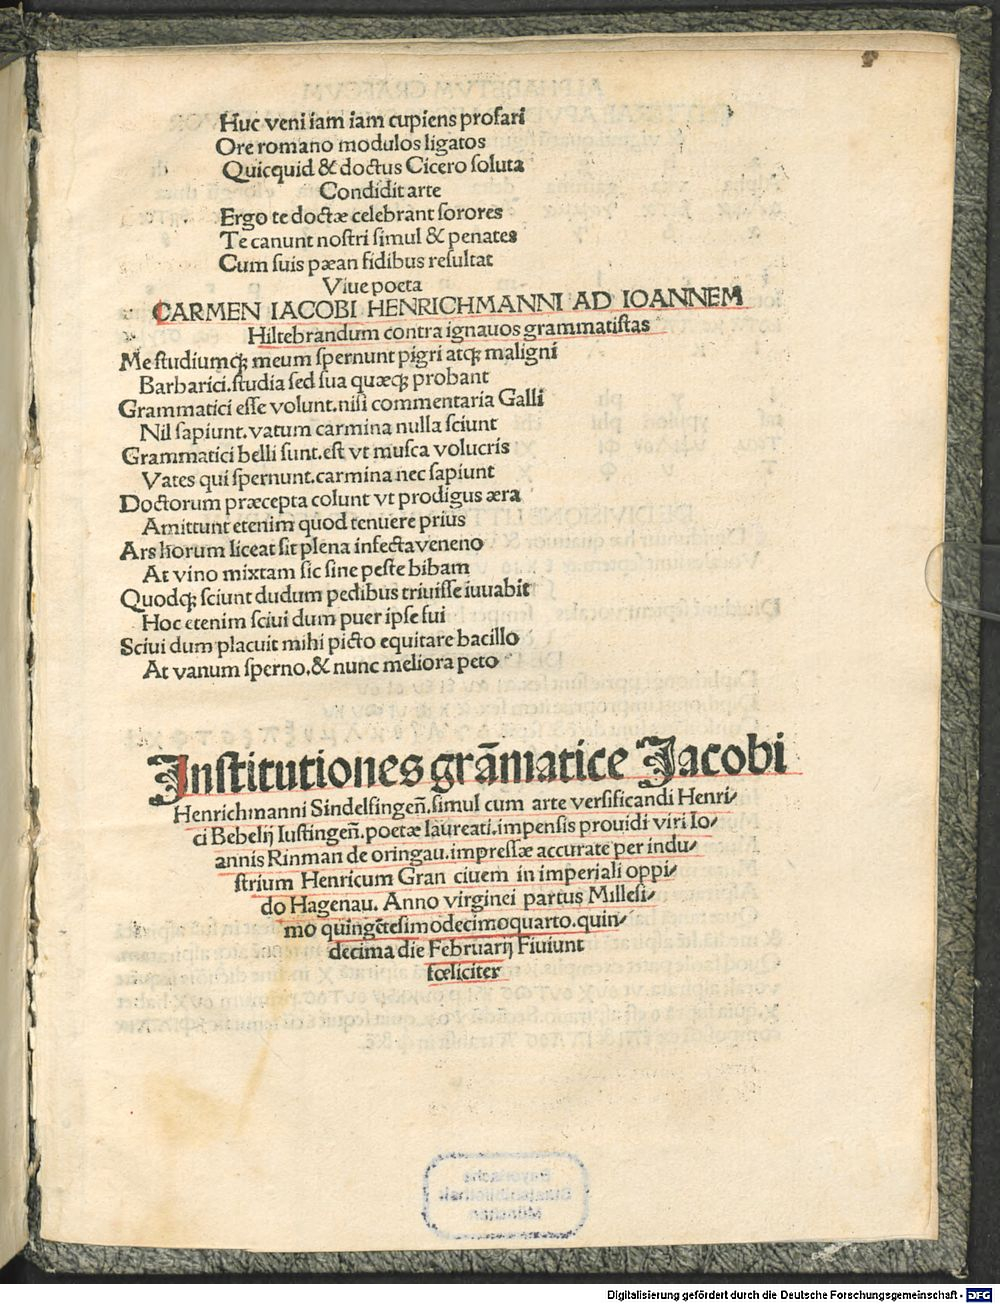 Huc veni iam iam cupiens profari
Ore romano modulos ligatos
Quicquid & doctus Cicero soluta
Condidit arte
Ergo te doctæ celebrant sorores
Te canunt nostri simul & penates
Cum suis pæan fidibus resultat
Viue poeta
CARMEN IACOBI HENRICHMANNI AD IOANNEM
Hiltebrandum contra ignauos grammatistas
Me studiumqʒ meum spernunt pigri atqʒ maligni
Barbarici.studia sed sua quæqʒ probant
Grammatici esse volunt.nisi commentaria Galli
Nil sapiunt.vatum carmina nulla sciunt
Grammatici belli sunt.est vt musca volucris
Vates qui spernunt.carmina nec sapiunt
Doctorum præcepta colunt vt prodigus æra
Amittunt etenim quod tenuere prius
Ars horum liceat sit plena infecta veneno
At vino mixtam sic sine peste bibam
Quodqʒ sciunt dudum pedibus triuisse iuuabit
Hoc etenim sciui dum puer ipse fui
Sciui dum placuit mihi picto equitare bacillo
At vanum sperno.& nunc meliora peto
Institutiones grāmatice Jacobi
Henrichmanni Sindelfingen̄.simul cum arte versificandi Henri/
ci Bebelij Iustingen̄.poetæ laureati.impensis prouidi viri Io/
annis Rinman de oringau.impressæ accurate per indu/
strium Henricum Gran ciuem in imperiali oppi/
do Hagenau. Anno virginei partus Millesi/
mo quingētesimodecimoquarto.quin/
decima die Februarij Fiuiunt
fœliciter
Bayerische
Staatsbibliothek
München
Digitalisierung gefördert durch die Deutsche Forschungsgemeinschaft - DFG